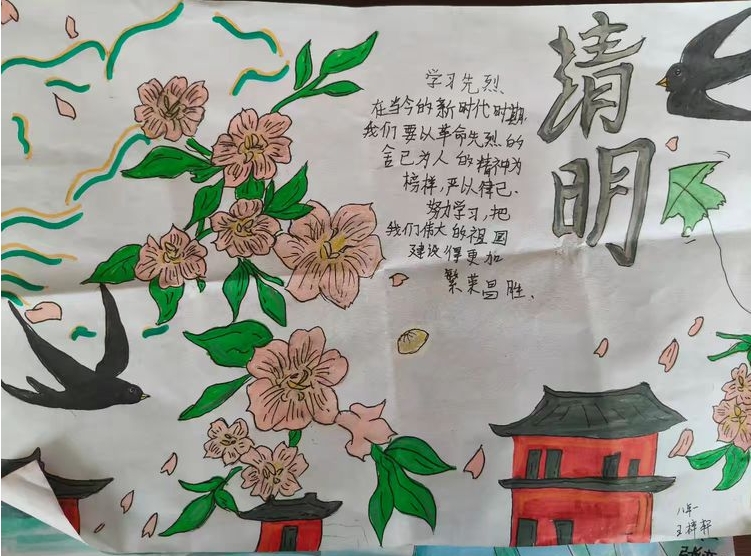 清明
学习先烈
在当今的新时代时期
我们要以革命先烈的
舍己为人的精神为
榜样,严以律己、
努力学习,把
我们伟大的祖国
建设得更加
繁荣昌胜、
八年一
王梓轩